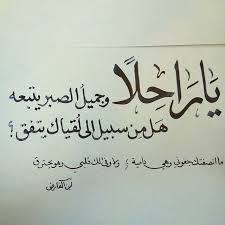 يَا رَاحِلًا وجميلُ الصبرِ يتبعه
هَل من سبيل الى لُقياك يتفق ؟
ما انصفتك جفوني وهي دامية ؛ ولا وفى لك قلبي وهو يحترق
ابن الفارض